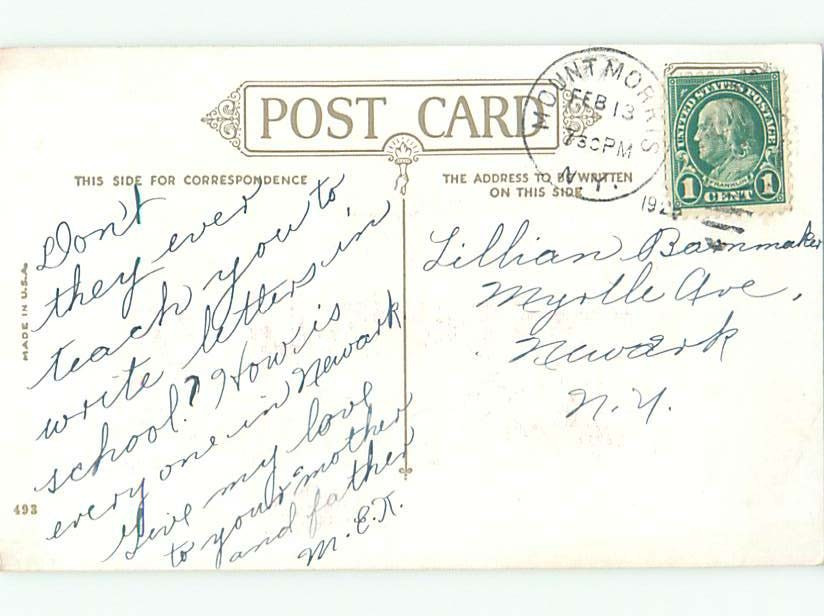 POST CARD
THIS SIDE FOR CORRESPONDENCE
THE ADDRESS TO BE WRITTEN
ON THIS SIDE
MOUNT MORRIS
FEB 13
730PM
N.Y.
192
UNITED STATES POSTAGE
FRANKLIN
1 CENT 1
MADE IN U.S.A.
493
Don't
they ever
teach you to
write letters in
school? How is
every one in Newark
Give my love
to your mother
and father
M.E.K.
Lillian
Myrtle Ave,
Newark
N.Y.